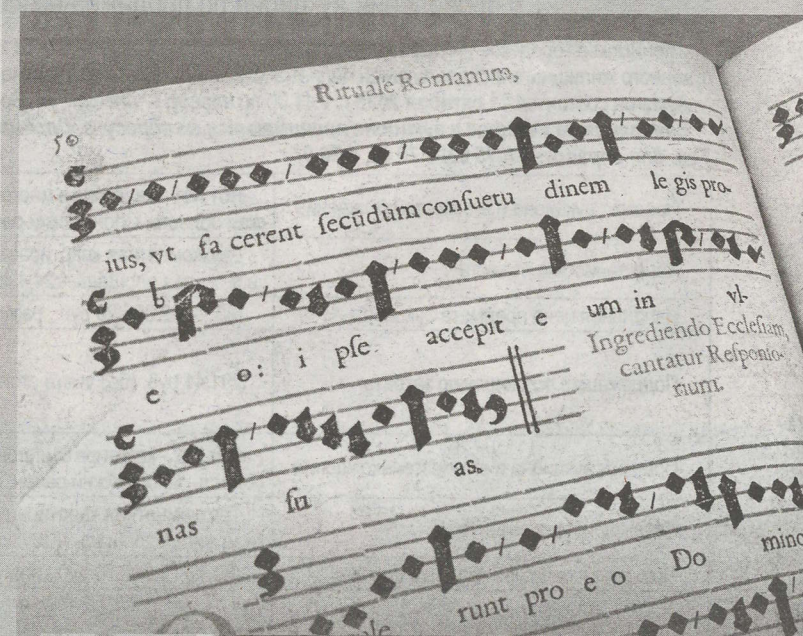 Rituale Romanum,
50
ius, vt fa cerent secūdùm consuetu dinem le gis pro-
e o: i pse accepit e um in vl-
Ingrediendo Ecclesiam,
cantatur Responso-
rium.
nas su as.
runt pro e o Do mino